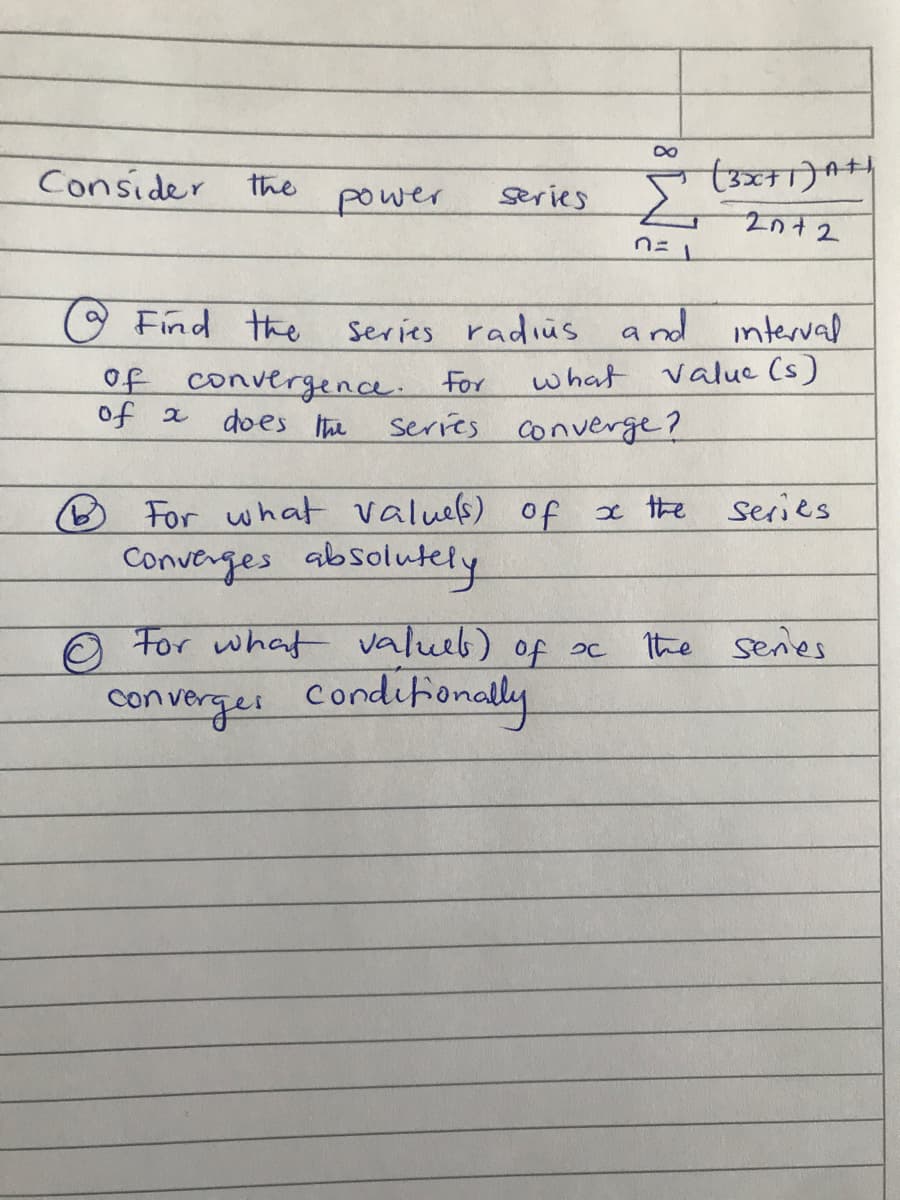 Consider the power series ∞ Σ n=1 (3x+1)^{n+1} / 2n+2
(a) Find the series radius and interval
of convergence. For what value (s)
of x does the series converge?
(b) For what value(s) of x the series
Converges absolutely
(c) For what value(s) of x the series
converges conditionally